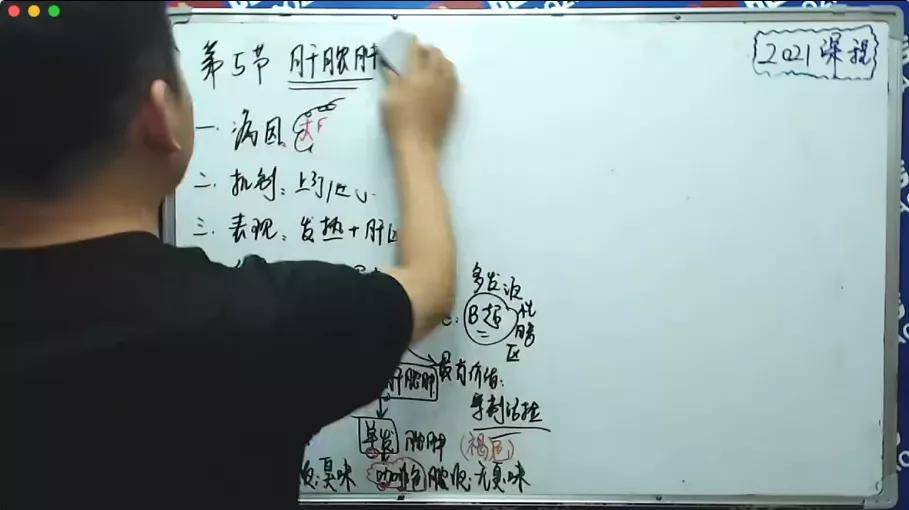 2021课程
第5节 肝脓肿
一. 病因
二. 机制:
三. 表现: 发热+肝区
多发液
B超
化
暗
区
肝脓肿
最有价值:
穿刺活检
单发 脓肿 (褐色)
臭味 咖啡色脓液:无臭味